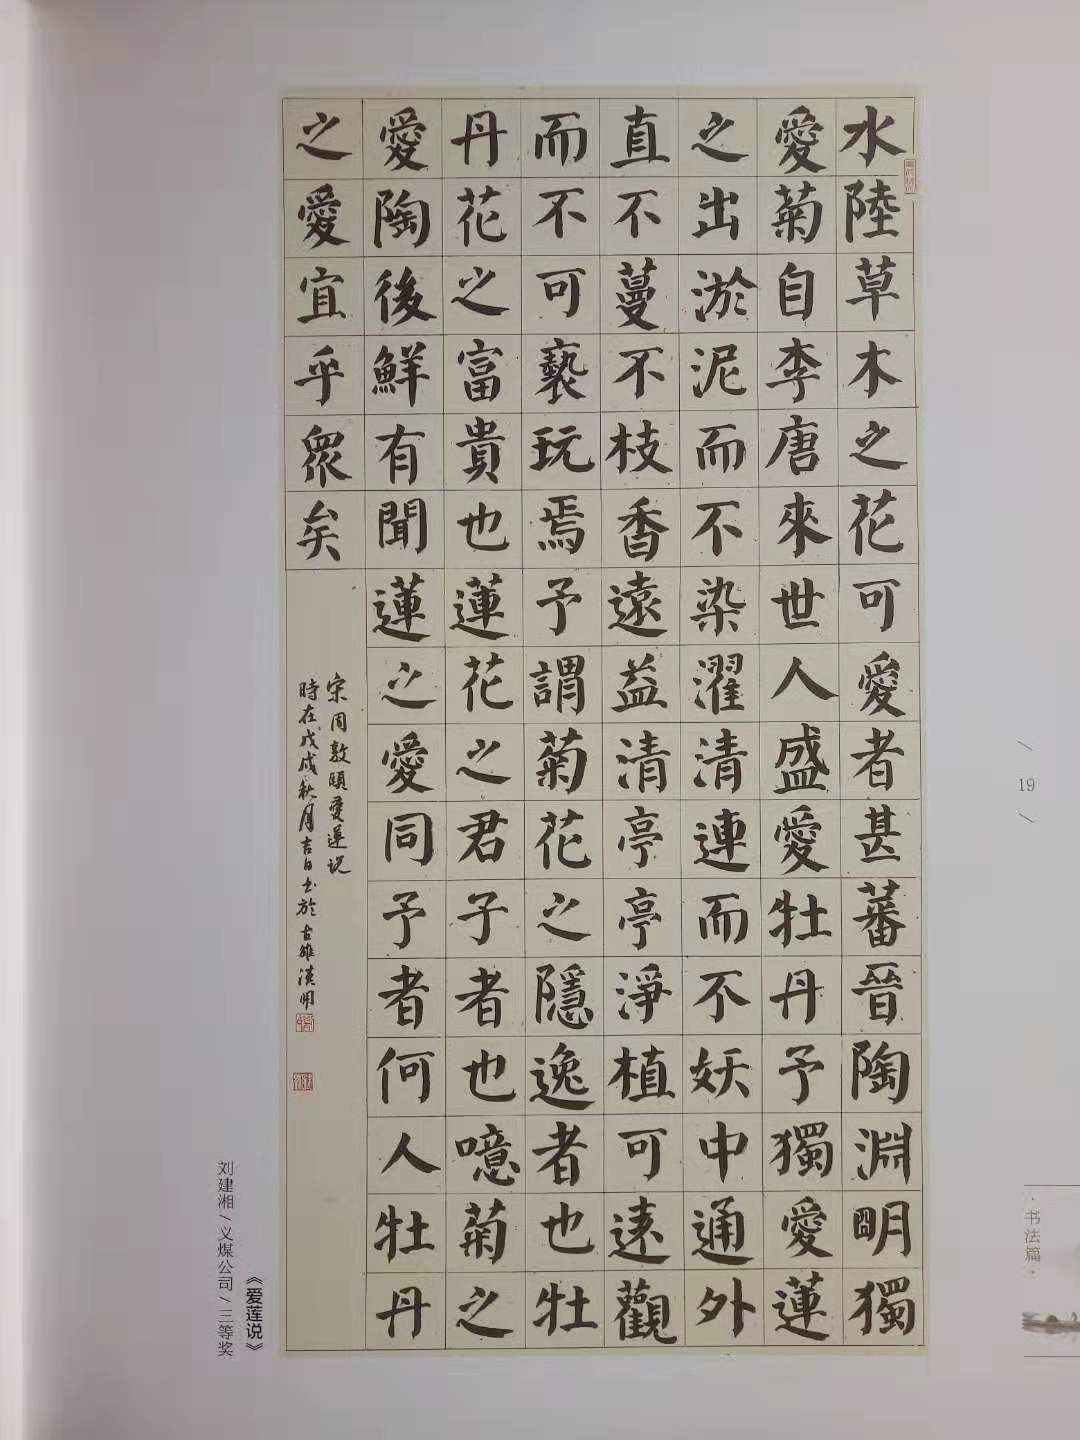 水陸草木之花可愛者甚蕃晉陶淵明獨
愛菊自李唐來世人盛愛牡丹予獨愛蓮
之出淤泥而不染濯清連而不妖中通外
直不蔓不枝香遠益清亭亭淨植可遠觀
而不可褻玩焉予謂菊花之隱逸者也牡
丹花之富貴也蓮花之君子者也噫菊之
愛陶後鮮有聞蓮之愛同予者何人牡丹
之愛宜乎眾矣
宋周敦頤愛蓮说
時在戊戌秋月吉日书於古雒
《爱莲说》
刘建湘/义煤公司/三等奖
19
·书法篇·